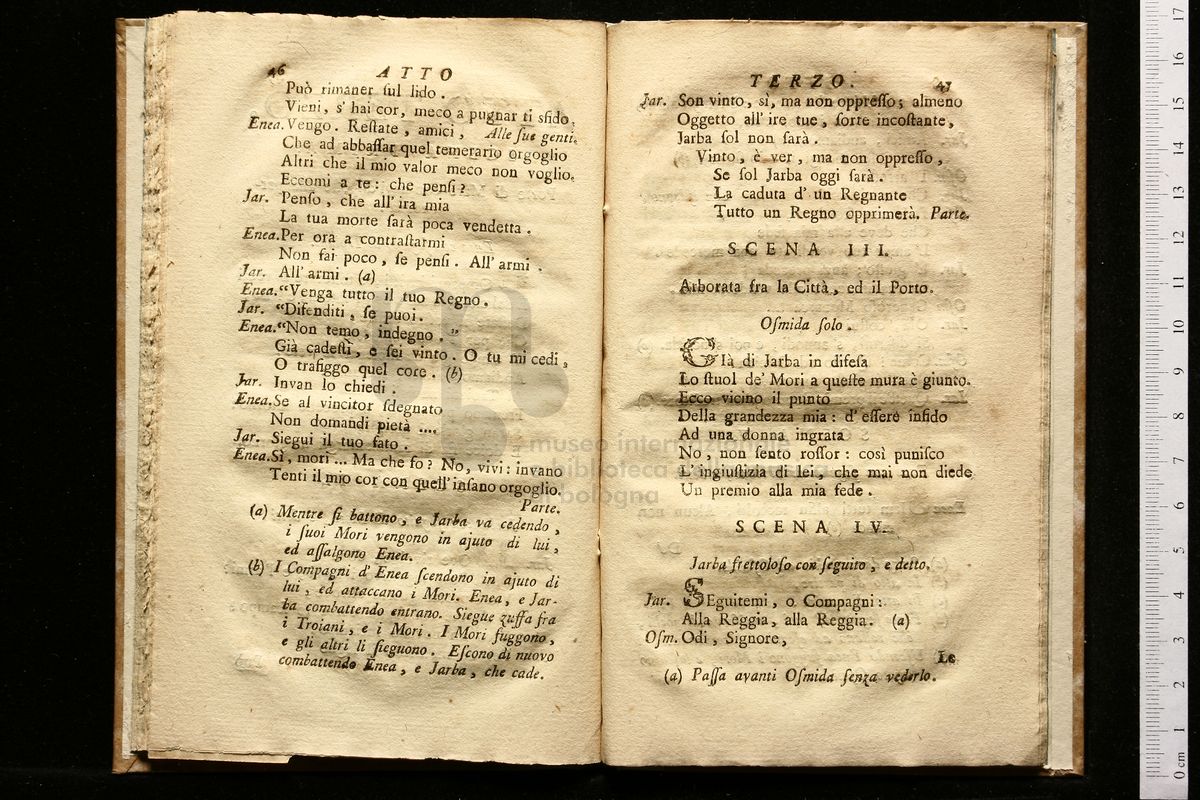 46 ATTO
Può rimaner ſul lido.
Vieni, s' hai cor, meco a pugnar ti sfido.
Enea. Vengo. Reſtate, amici, Alle ſue genti.
Che ad abbaſſar quel temerario orgoglio
Altri che il mio valor meco non voglio.
Eccomi a te: che penſi?
Jar. Penſo, che all' ira mia
La tua morte ſarà poca vendetta.
Enea. Per ora a contraſtarmi
Non fai poco, ſe penſi. All' armi.
Jar. All' armi. (a)
Enea. “Venga tutto il tuo Regno.
Jar. “Difenditi, ſe puoi.
Enea. “Non temo, indegno.”
Già cadeſti, e ſei vinto. O tu mi cedi,
O trafiggo quel core. (b)
Jar. Invan lo chiedi.
Enea. Se al vincitor ſdegnato
Non domandi pietà ....
Jar. Siegui il tuo fato.
Enea. Sì, mori ... Ma che fo? No, vivi: invano
Tenti il mio cor con quell' inſano orgoglio.
Parte.
(a) Mentre ſi battono, e Jarba va cedendo,
i ſuoi Mori vengono in ajuto di lui,
ed aſſalgono Enea.
(b) I Compagni d' Enea ſcendono in ajuto di
lui, ed attaccano i Mori. Enea, e Jar-
ba combattendo entrano. Siegue zuffa fra
i Troiani, e i Mori. I Mori fuggono,
e gli altri li ſieguono. Eſcono di nuovo
combattendo Enea, e Jarba, che cade.
TERZO. 47
Jar. Son vinto, sì, ma non oppreſſo; almeno
Oggetto all' ire tue, ſorte incoſtante,
Jarba ſol non ſarà.
Vinto, è ver, ma non oppreſſo,
Se ſol Jarba oggi ſarà.
La caduta d' un Regnante
Tutto un Regno opprimerà. Parte.
SCENA III.
Arborata fra la Città, ed il Porto.
Oſmida ſolo.
Già di Jarba in difeſa
Lo ſtuol de' Mori a queſte mura è giunto.
Ecco vicino il punto
Della grandezza mia: d' eſſere infido
Ad una donna ingrata
No, non ſento roſſor: così puniſco
L' ingiuſtizia di lei, che mai non diede
Un premio alla mia fede.
SCENA IV.
Jarba frettoloſo con ſeguito, e detto.
Jar. SEguitemi, o Compagni:
Alla Reggia, alla Reggia. (a)
Oſm. Odi, Signore,
Le
(a) Paſſa avanti Oſmida ſenza vederlo.
museo internazionale
biblioteca della musica
di bologna
0 cm 1 2 3 4 5 6 7 8 9 10 11 12 13 14 15 16 17